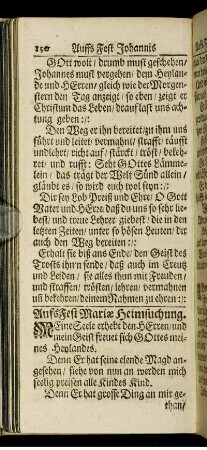 150 Auffs Fest Johannis
GOtt wolt / drumb must geschehen /
Johannes must vergehen / dem Heylan-
de und HErren / gleich wie der Morgen-
stern den Tag anzeigt / so eben / zeiget er
Christum das Leben / drauf last uns ach-
tung geben :/:
Den Weg er ihn bereitet / zu ihm uns
führt und leitet / vermahnt / strafft / räufft
und lehrt / richt auf / stärckt / tröst / bekeh-
ret / und rufft: Seht GOttes Lämme-
lein / das trägt der Welt Sünd allein /
gläubt es / so wird euch wol seyn :/:
Dir sey Lob Preiß und Ehre / O Gott
Vater und HErr / daß du uns so sehr lie-
best / und treue Lehrer giebest / die in den
letzten Zeiten / unter so bösen Leuten / der
auch den Weg bereiten :/:
Erhalt sie biß ans End / den Geist des
Trosts ihnen sende / daß auch im Creutz
und Leiden / sie alles thun mit Freuden /
und straffen / trösten / lehren / vermahnen
uñ bekehren / deinem Nahmen zu ehren :/:
Auffs Fest Mariæ Heimsuchung.
MEine Seele erhebt den HErren / und
mein Geist freuet sich GOttes mei-
nes Heylandes.
Denn Er hat seine elende Magd an-
gesehen / siehe von nun an werden mich
seelig preisen alle Kindes Kind.
Denn Er hat grosse Ding an mir ge-
than /